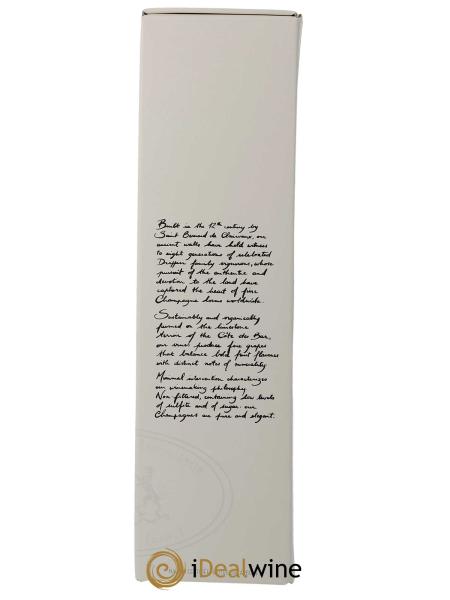 Built in the 12th century by
Saint Bernard de Clairvaux, our
ancient walls have held witness
to eight generations of celebrated
Drappier family vignerons, whose
pursuit of the authentic and
devotion to the land have
captured the heart of fine
Champagne lovers worldwide.
Sustainably and organically
farmed on the limestone
terroir of the Côte des Bar,
our vines produce fine grapes
that balance bold fruit flavours
with distinct notes of minerality.
Minimal intervention characterizes
our winemaking philosophy.
Non-filtered, containing low levels
of sulfite and of sugar: our
Champagnes are pure and elegant.
iDealwine